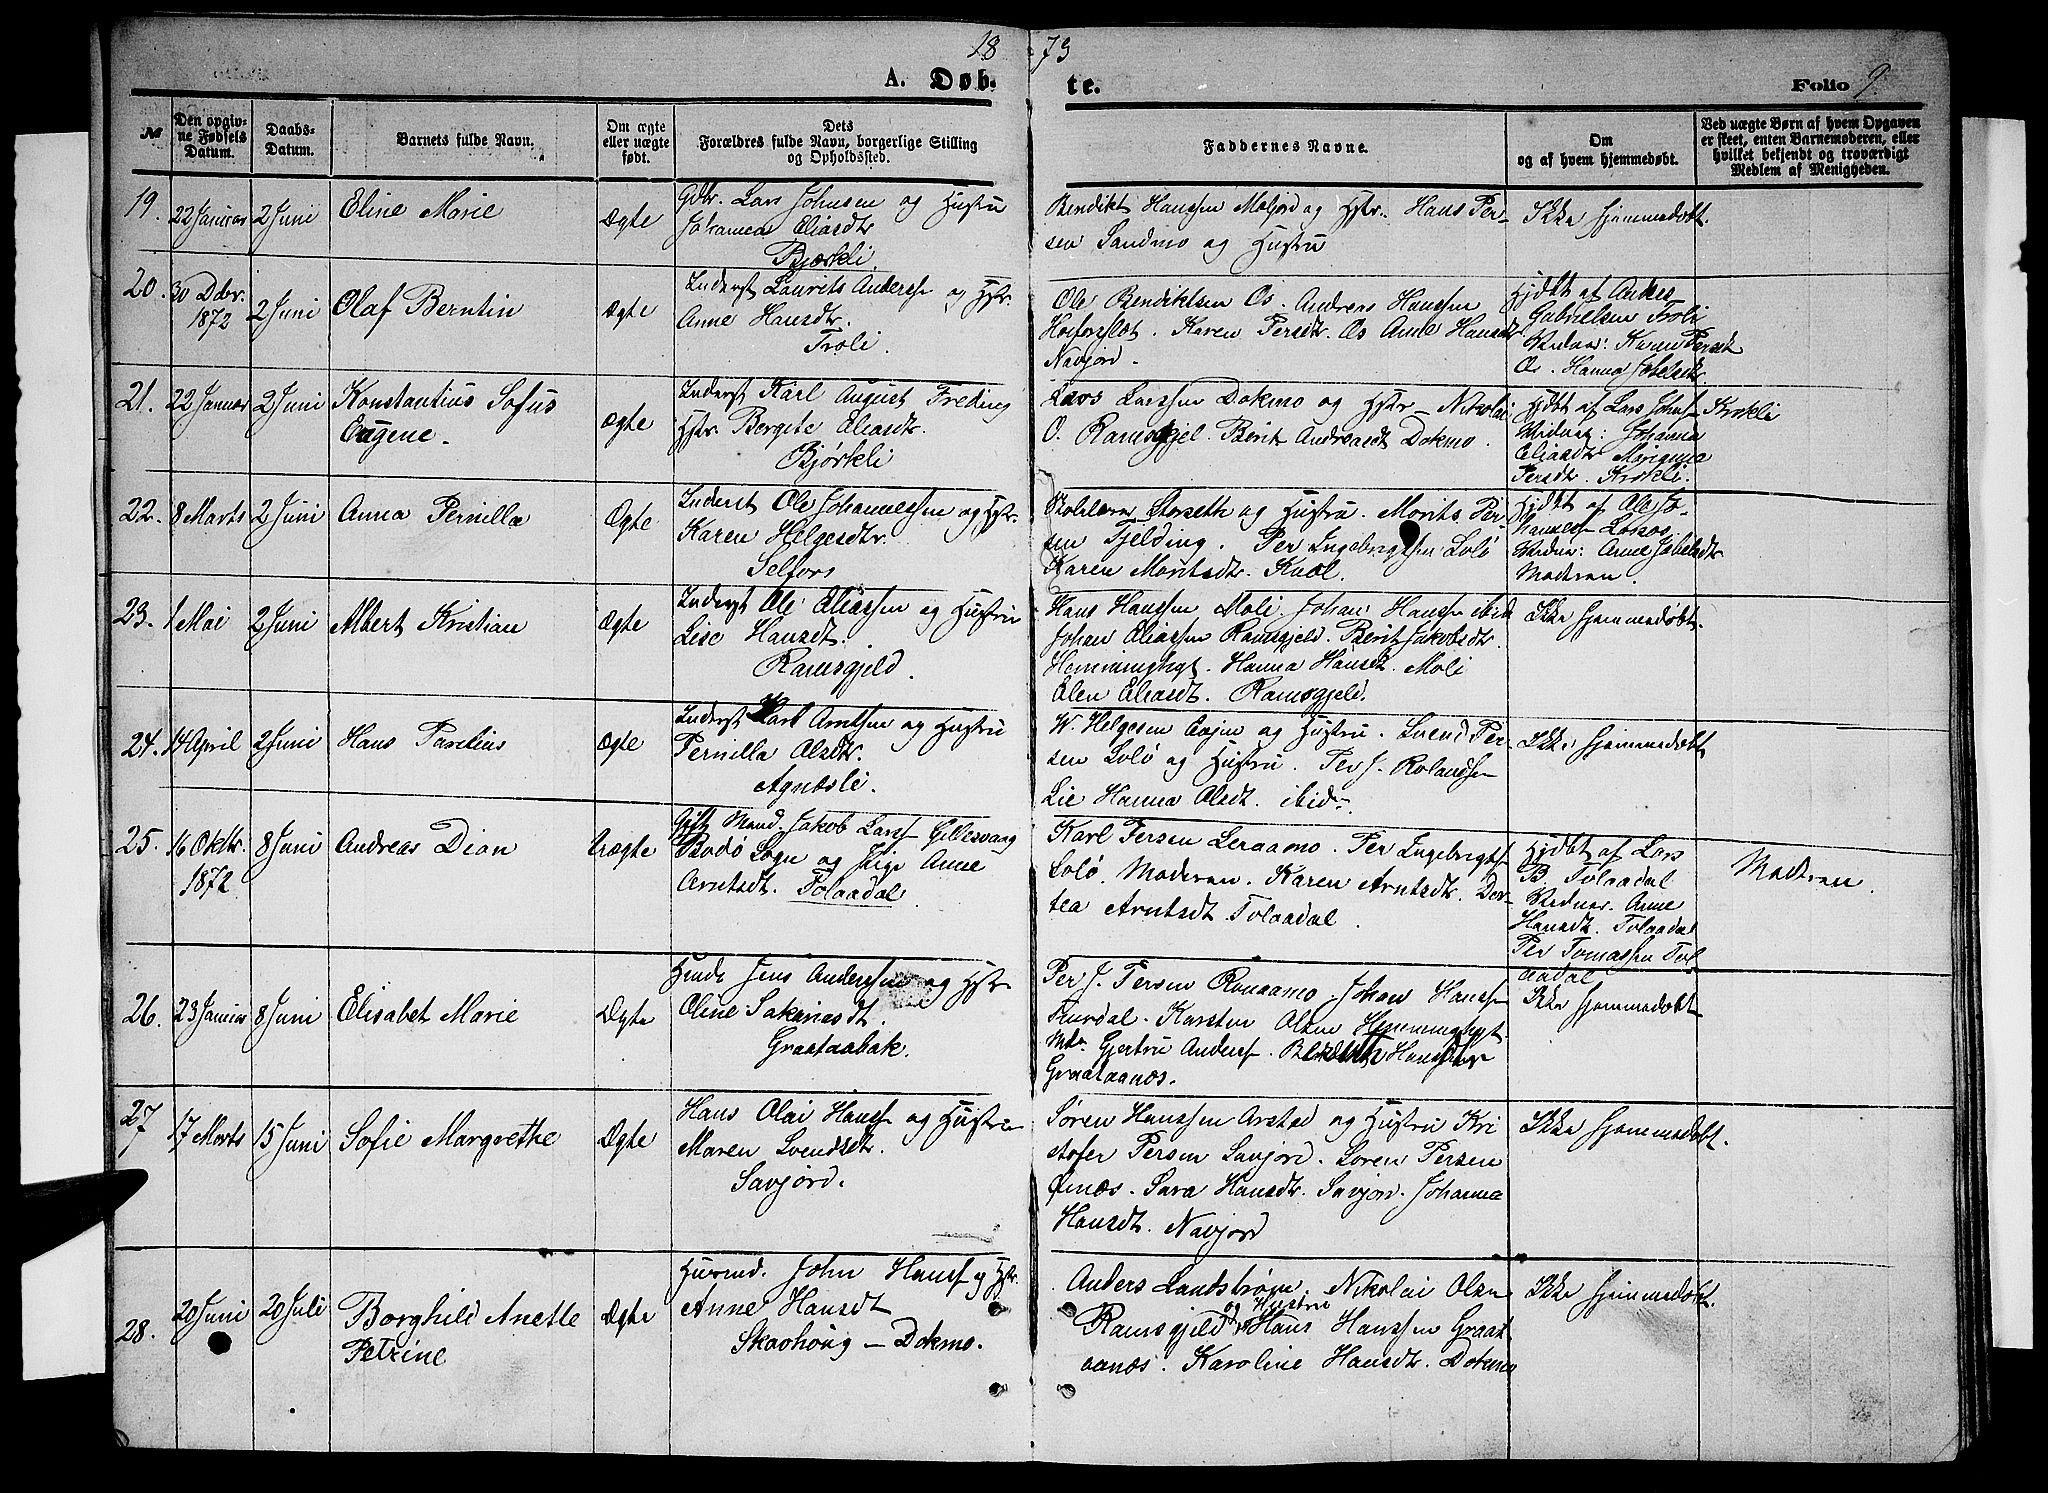 1873
A. Døbte.
Folio 9.
№
Den opgivne Fødsels Datum.
Daabs-Datum.
Barnets fulde Navn.
Om ægte eller uægte født.
Dets Forældres fulde Navn, borgerlige Stilling og Opholdssted.
Faddernes Navne.
Om og af hvem hjemmedøbt.
Ved uægte Børn af hvem Opgaven er skeet, enten Barnemoderen, eller hvilket bekjendt og troværdigt Medlem af Menigheden.
19.
22 Januar
2 Juni
Eline Marie
Ægte
Gdbr. Lars Johnsen og Hustru
Johanna Eliasdtr
Bjørkli
Bendikt Hanssen Moljord og Hstr. Hans Per-
sen Sandmo og Hustru
Ikke hjemmedøbt.
20.
30 Dcbr.
1872
2 Juni
Olaf Berntin
Ægte
Inderst Laurits Anderss og Hstr.
Anne Hansdtr.
Troli
Ole Bendiktsen Os. Andreas Hanssen
Høiforslet. Karen Persdtr. Os Anne Hansdtr
Navjord.
Hjdbt af Anders
Gabrielsen Troli
Vidner: Karen Persdt
Os. Hanna
21.
22 Januar
2 Juni
Konstantius Sofus
Eugene.
Ægte
Inderst Karl August Freding
Hstr. Bergite Eliasdtr.
Bjørkli
Lars Larssen Dokmo og Hstr – Nikolai
O. Ramsgjel. Berit Andreasdt Dokmo.
Hjdbt af Lars Johns Krokli
Vidner: Johanna
Eliasdtr Marianna
Persdt. Krokli.
22.
8 Marts
2 Juni
Anna Pernilla
Ægte
Inderst Ole Johannessen og Hstr.
Karen Helgesdtr.
Selfors
Storseth og Hustru. Morits Per-
sen Fjelding. Per Ingebrigtsen Lolø
Karen Moritsdtr. Kvæl.
Hjdbt af Ole Jo-
hanness Lossos
Vidner: Anne Jakobsdtr
Modtren.
23.
1 Mai
2 Juni
Albert Kristian
Ægte
Inderst Ole Eliassen og Hustru
Lise Hansdt.
Ramsgjeld.
Hans Hanssen Moli. Johan Hanss ibid
Johan Eliassen Ramsgjeld. Berit Jakobsdtr.
Hemminghyt. Hanna Hansdt. Moli
Elen Eliasdt. Ramsgjeld.
Ikke hjemmedøbt.
24.
14 April
2 Juni
Hans Parelius
Ægte
Inderst Karl Arntsen og Hustru
Pernilla Olsdtr.
Agnæsli.
W. Helgesen Evjen og Hustru. Svend Per-
sen Lolø og Hustru. Per J. Rolandsen
Lie Hanna Olsdt. ibid
Ikke hjemmedøbt
25.
16 Oktbr.
1872
8 Juni
Andreas Dian
Uægte
Gift Mand Jakob Larss Gillesvaag
Bodø Sogn og Pige Anne
Arntsdt. Tolaadal.
Karl Persen Leraamo. Per Ingebrigts
Lolø. Moderen. Karen Arntsdtr. Dor-
tea Arntsdt. Tolaadal.
Hjdbt af Lars
B. Tolaadal
Vidner. Anne
Hansdt. Tolaadal
Per Tomassen Tol
aadal
Modtren.
26.
23 Januar
8 Juni
Elisabet Marie
Ægte
Jens Anderssen og Hstr
Eline Sakariasdt.
Graataabak.
Per J. Persen Ranaamo Johan Hanss
Furdal. Karsten Olsen Hemminghyt
Gjertru Anderss.
Graataanæs.
Ikke hjemmedøbt
27
17 Marts
15 Juni
Sofie Margrethe
Ægte
Hans Olai Hanss og Hustru
Maren Svendsdtr.
Savjord.
Søren Hanssen Arstad og Hustru Kri
stofer Persen Savjord. Søren Persen
Øinæs. Sara Hansdtr. Savjord. Johanna
Hansdt. Navjord
Ikke hjemmedøbt.
28.
20 Juni
20 Juli
Borghild Anette
Petrine
Ægte
Husmd. John Hanss og Hstr.
Anne Hansdt
Skaohøug – Dokmo.
Anders Landstrøm. Nikolai Olsen
og Hustru
Ramsgjeld Hans Hanssen Graat
aanæs. Karoline Hansdt. Dokmo
Ikke hjemmedøbt.